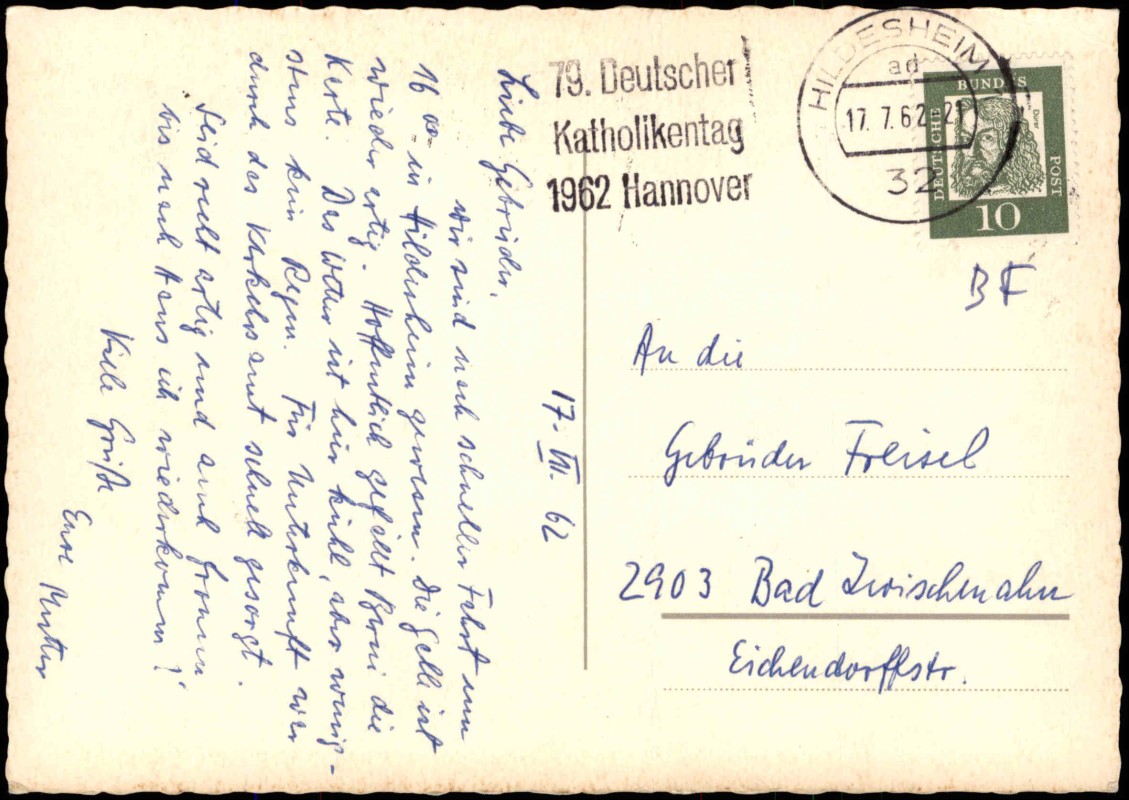 79. Deutscher
Katholikentag
1962 Hannover
HILDESHEIM
ad
17.7.62-21
32
DEUTSCHE
BUNDES
POST
Dürer
10
BF
17. VII. 62
Liebe Gebrüder,
wir sind nach schneller Fahrt um
16 00 in Hildesheim gewesen. Die Gelli ist
wieder artig. Hoffentlich gefällt Berni die
Karte. Das Wetter ist hier kühl, aber wenig-
stens kein Regen. Für Unterkunft war
durch das Verkehrsamt schnell gesorgt.
Seid recht artig und auch fromm
bis nach Haus ich wiederkomm!
Viele Grüße
Eure Mutter
An die
Gebrüder Freisel
2903 Bad Zwischenahn
Eichendorffstr.